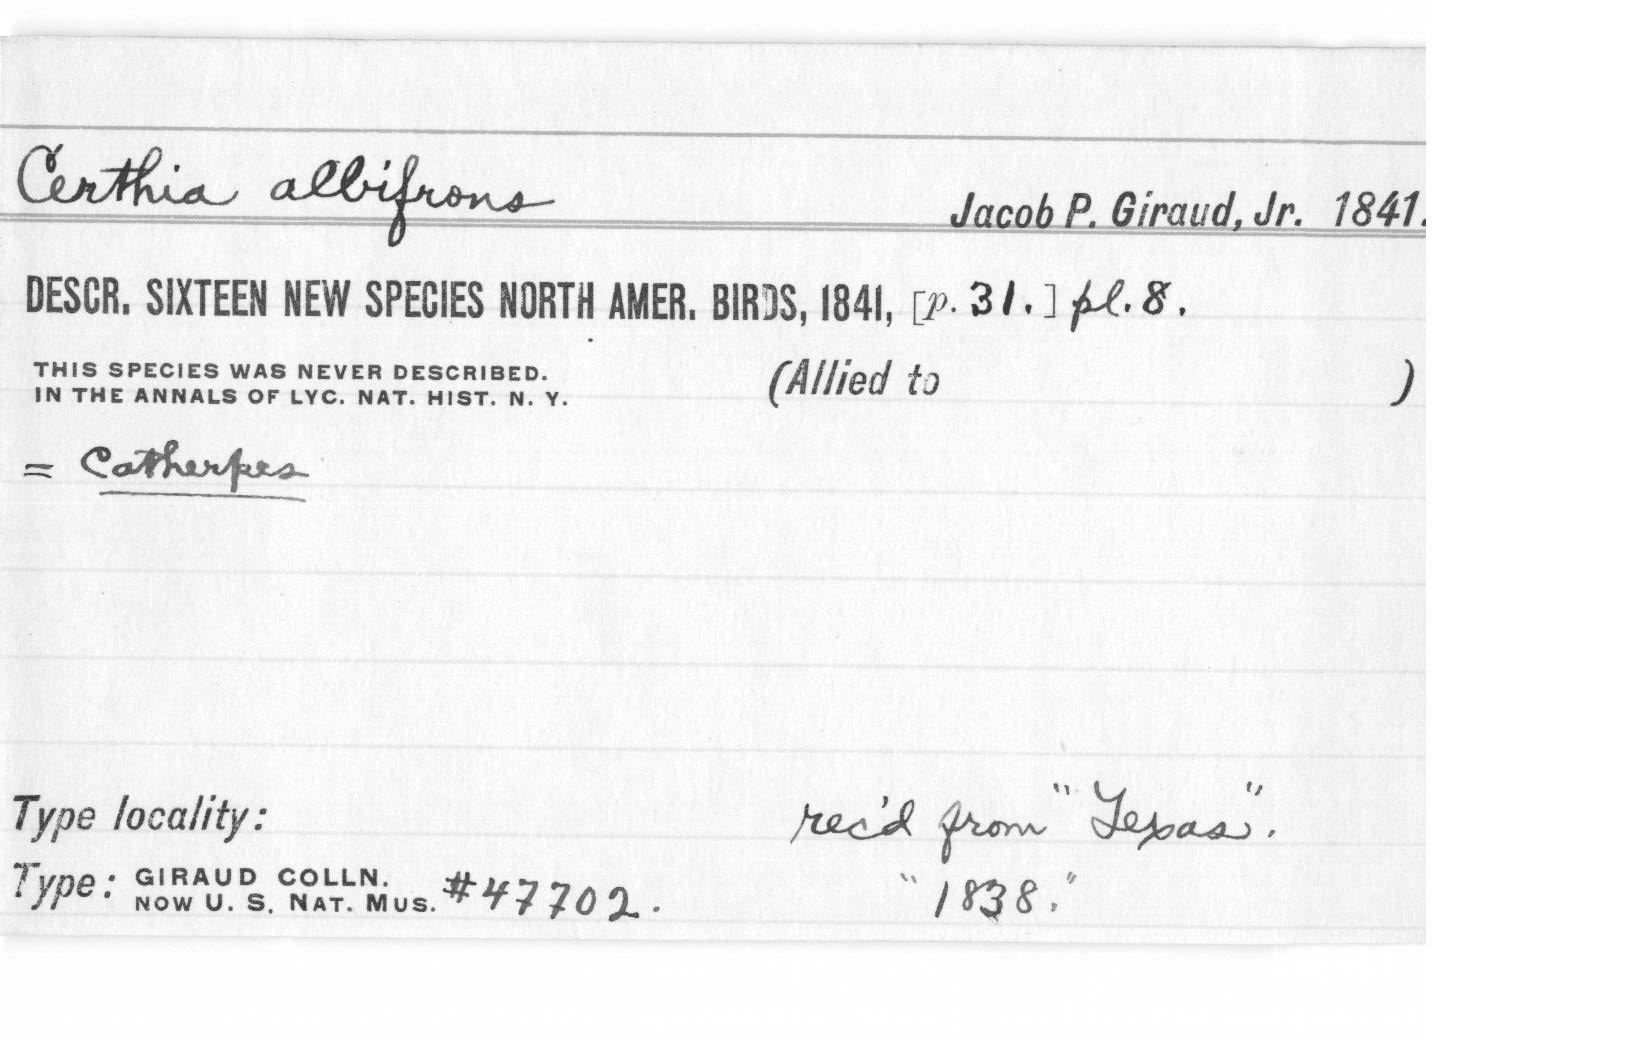 Certhia albifrons
Jacob P. Giraud, Jr. 1841.
DESCR. SIXTEEN NEW SPECIES NORTH AMER. BIRDS, 1841, [p. 31.] pl. 8.
THIS SPECIES WAS NEVER DESCRIBED.
IN THE ANNALS OF LYC. NAT. HIST. N. Y.
(Allied to )
= Catherpes
Type locality: rec'd from "Texas".
Type: GIRAUD COLLN. NOW U. S. NAT. MUS. #47702. "1838."